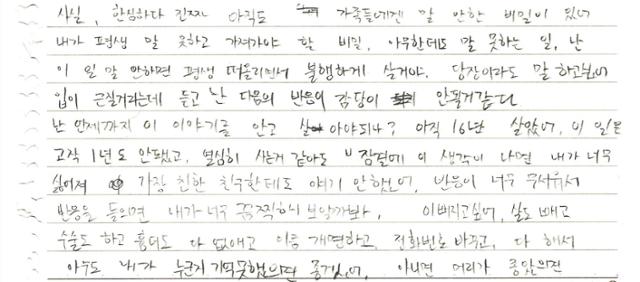 사실, 한심하다 진짜 아직도 가족들에겐 말 안한 비밀이 있어
내가 평생 말 못하고 가져가야 할 비밀, 아무한테도 말 못하는 일, 난
이 일 말 안하면 평생 떠올리면서 불행하게 살거야. 당장이라도 말하고싶어
입이 근질거리는데 듣고 난 다음의 반응이 감당이 안될거같다
난 언제까지 이 이야기를 안고 살아야되나? 아직 16년 살았어, 이 일은
고작 1년도 안됐고, 열심히 사는거 같아도 잠결에 이 생각이 나면 내가 너무
싫어져 가장 친한 친구한테도 얘기 안했어, 반응이 너무 무서워서
반응을 들으면 내가 너무 끔찍하니 보일까봐, 이뻐지고싶어, 살도 빼고
수술도 하고 흉터도 다 없애고 이름 개명하고, 전화번호 바꾸고, 다 해서
아무도 내가 누군지 기억못했으면 좋겠어, 아니면 머리가 좋았으면